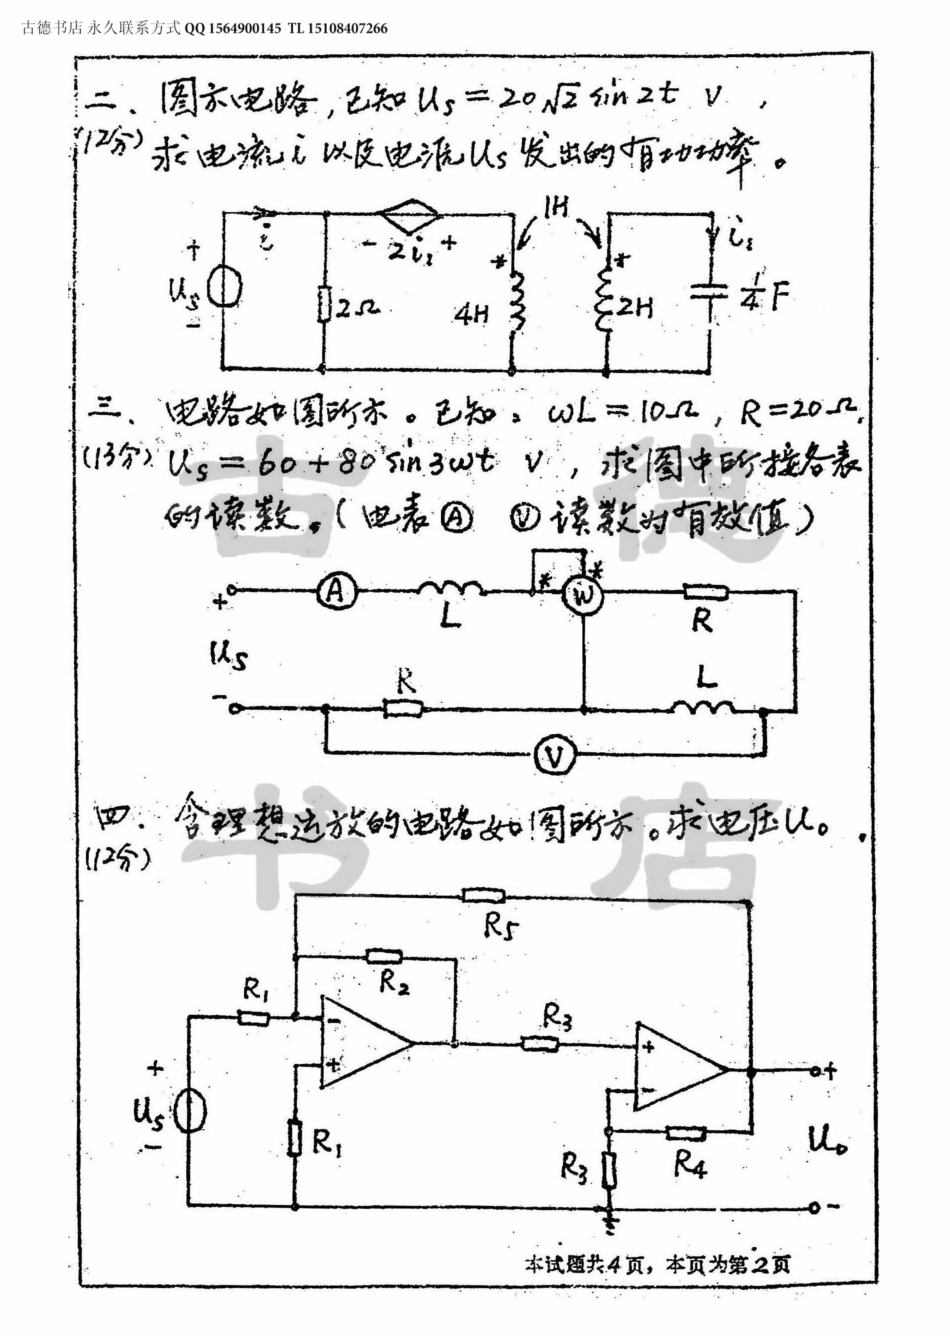 古德书店 永久联系方式 QQ 1564900145 TL 15108407266
二、图示电路,已知 Us = 20√2 sin 2t V ,
(12分) 求电流 i 以及电源 Us 发出的有功功率。
1H
+ i - 2i₁ + * * i₁
Us 2Ω 4H 2H 1/4 F
-
三、电路如图所示。已知: ωL = 10Ω , R = 20Ω,
(13分) Us = 60 + 80 sin 3ωt V , 求图中所接各表
的读数。(电表 Ⓐ Ⓥ 读数为有效值)
* *
+ A L W R
Us
- R L
V
四、含理想运放的电路如图所示。求电压 U₀ .
(12分)
R₅
R₂
R₁ - R₃ +
+ + - +
Us R₁ R₃ R₄ U₀
- -
本试题共4页,本页为第2页
古德
书店